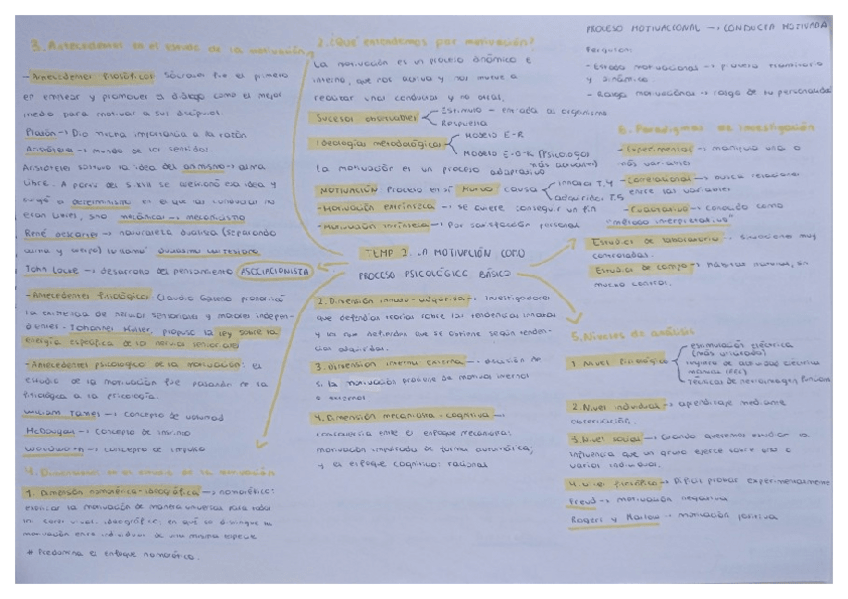 3. Antecedentes en el estudio de la motivación
- Antecedentes filosóficos: Sócrates fue el primero
en emplear y promover el diálogo como el mejor
medio para motivar a sus discípulos
Platón → Dio mucha importancia a la razón
Aristóteles → mundo de los sentidos
Aristóteles sostuvo la idea del animismo → alma
libre. A partir del S.XVII se esa idea y
surgió el determinismo en el que las conductas no
eran libres, sino mecánicas → mecanicismo
René Descartes → naturaleza dualista (separando
alma y cuerpo) llamó dualismo cartesiano
John Locke → desarrollo del pensamiento ASOCIACIONISTA
- Antecedentes fisiológicos: Claudio Galeno
la existencia de nervios sensoriales y motores indepen-
dientes - Johannes Müller, propuso la ley sobre la
energía específica de los nervios sensoriales
- Antecedentes psicológicos de la motivación: el
estudio de la motivación fue pasando de la
fisiológica a la psicología.
William James → concepto de voluntad
McDougall → concepto de instinto
Woodworth → concepto de impulso
4. Dimensiones en el estudio de la motivación
1. Dimensión nomotética-ideográfica → nomotético:
explicar la motivación de manera universal para todos
ideográfico: en qué se distingue la
motivación entre individuos de una misma especie
* Predomina el enfoque nomotético.
2. ¿Qué entendemos por motivación?
La motivación es un proceso dinámico e
interno, que nos activa y nos mueve a
realizar unas conductas y no otras.
Sucesos observables
Estímulo - entrada al organismo
Respuesta
Ideologías metodológicas
MODELO E-R
MODELO E-O-R (PSICÓLOGOS
más actuales)
La motivación es un proceso adaptativo
MOTIVACIÓN Proceso en sí Motivo causa
innatos T.4
adquiridos T.5
- Motivación extrínseca → se quiere conseguir un fin
- Motivación intrínseca → Por satisfacción personal
TEMA 1. LA MOTIVACIÓN COMO
PROCESO PSICOLÓGICO BÁSICO
2. Dimensión innata-adquirida → Investigadores
que defendían teorías sobre las tendencias innatas
y los que defendían que se obtiene según tenden-
cias adquiridas.
3. Dimensión interna-externa → discusión de
si la motivación procede de motivos internos
o externos
4. Dimensión mecanicista-cognitiva →
entre el enfoque mecanicista:
motivación impulsada de forma automática,
y el enfoque cognitivo: racional
PROCESO MOTIVACIONAL → CONDUCTA MOTIVADA
- Estado motivacional → proceso transitorio
y dinámico
- Rasgo motivacional → rasgo de su personalidad
6. Paradigmas de investigación
- Experimental → manipula una o
más variables
- Correlacional → busca relaciones
entre las variables
- Cualitativo → conocido como
"método interpretativo"
Estudios de laboratorio: situaciones muy
controladas.
Estudios de campo →
mucho control.
5. Niveles de análisis
1. Nivel fisiológico
estimulación eléctrica
(más utilizada)
registro de actividad eléctrica
manual (EEG)
Técnicas de neuroimagen funcional
2. Nivel individual → aprendizaje mediante
observación.
3. Nivel social → Cuando queremos analizar la
influencia que un grupo ejerce sobre uno o
varios individuos.
4. Nivel filosófico → Difícil probar experimentalmente
Freud → motivación negativa
Rogers y Maslow → motivación positiva